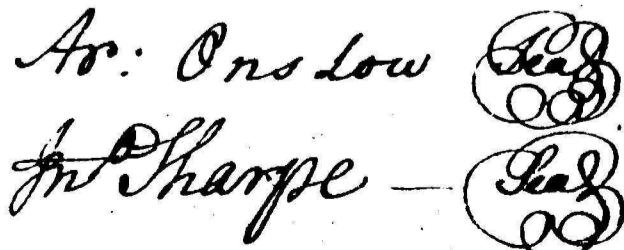 Ar: Onslow Seal
Jnº Sharpe — Seal